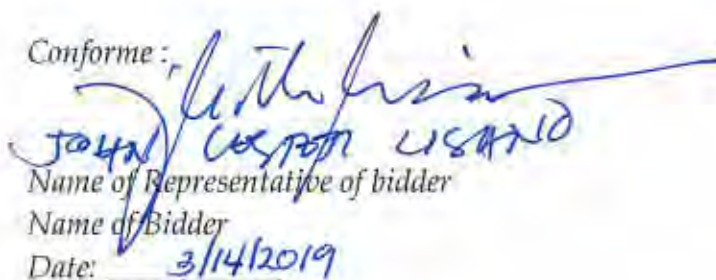 Conforme :
JOHN LISANO
Name of Representative of bidder
Name of Bidder
Date: 3/14/2019